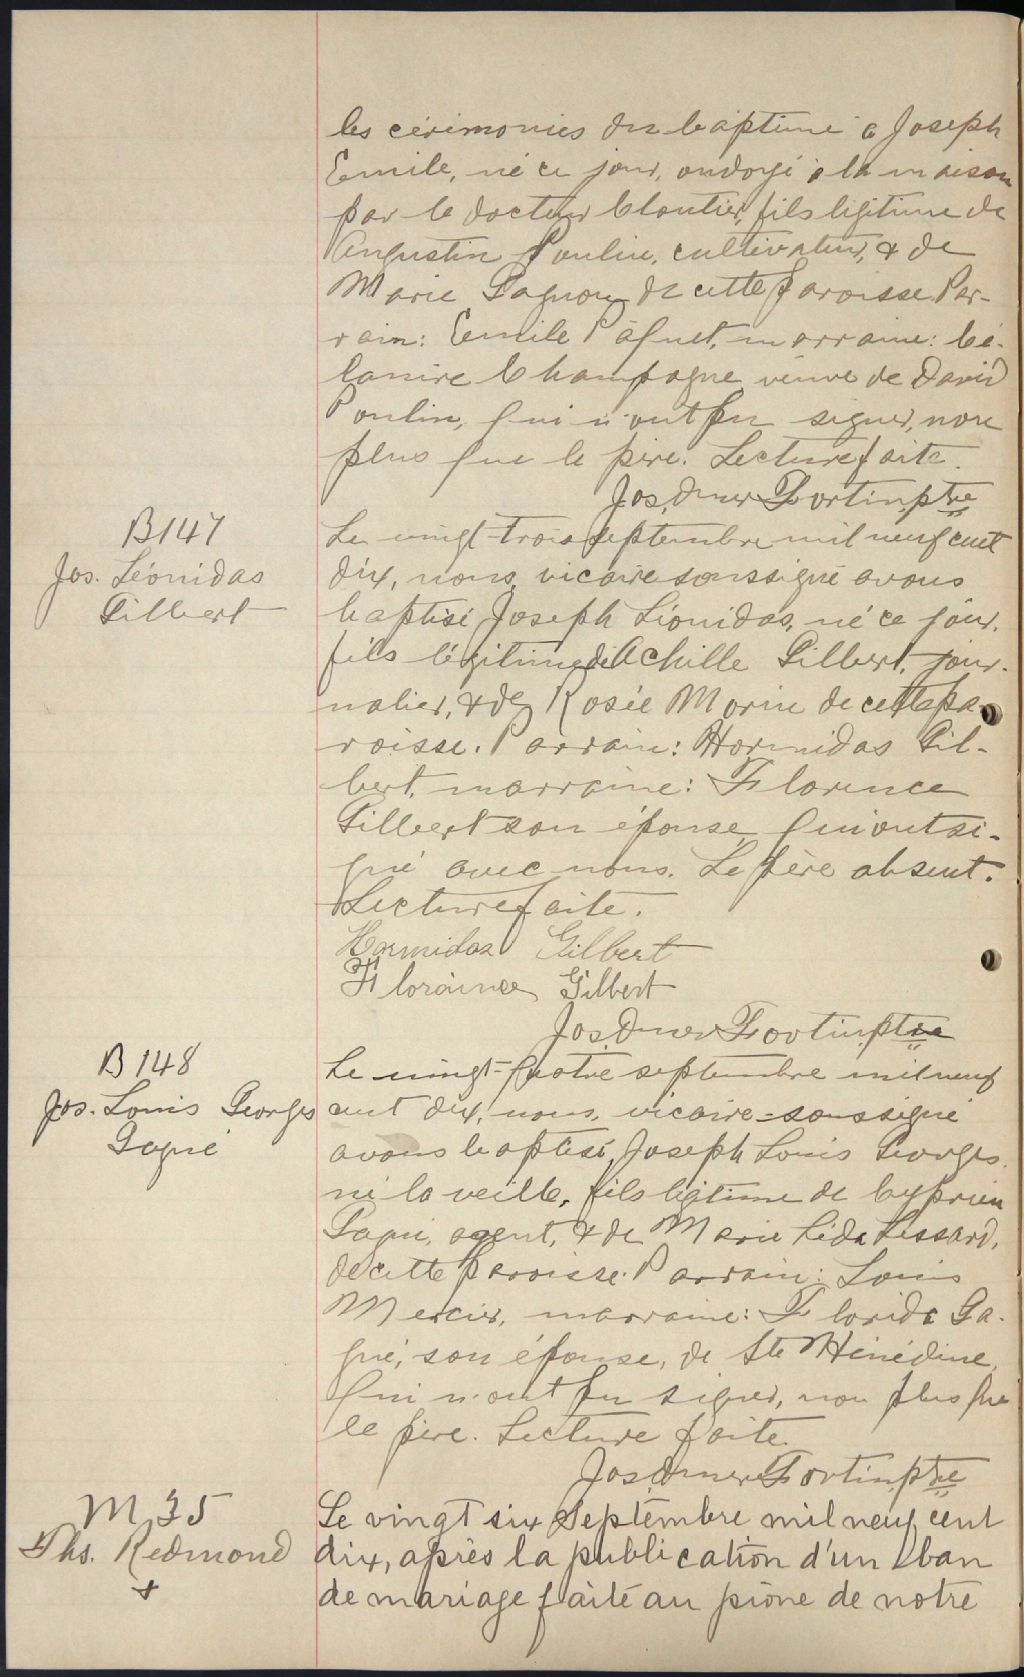 les cérémonies du baptême à Joseph
Emile, né ce jour, ondoyé à la maison
par le docteur Cloutier, fils légitime de
Augustin Poulin, cultivateur, & de
Marie Gagnon de cette paroisse. Par-
rain: Emile Pâquet, marraine: Cé-
lanire Champagne, veuve de David
Poulin, qui n'ont pu signer, non
plus que le père. Lecture faite.
Jos. Omer Fortin, ptre
B147
Jos. Léonidas
Gilbert
Le vingt-trois septembre mil neuf cent
dix, nous, vicaire soussigné avons
baptisé Joseph Léonidas, né ce jour,
fils légitime de Achille Gilbert, jour-
nalier, & de Rosée Morin de cette pa-
roisse. Parrain: Hormidas Gil-
bert, marraine: Florence
Gilbert son épouse, qui ont si-
gné avec nous. Le père absent.
Lecture faite.
Hormidas Gilbert
Floraince Gilbert
Jos. Omer Fortin, ptre
B 148
Jos. Louis Georges
Gagné
Le vingt-quatre septembre mil neuf
cent dix, nous, vicaire-soussigné
avons baptisé, Joseph Louis Georges,
né la veille, fils légitime de Cyprien
Gagné, agent, & de Marie Léda Lessard,
de cette paroisse. Parrain: Louis
Mercier, marraine: Florida Ga-
gné, son épouse, de Ste Hénédine,
qui n'ont pu signer, non plus que
le père. Lecture faite.
Jos. Omer Fortin, ptre
M 35
Ths. Redmond
&
Le vingt six Septembre mil neuf cent
dix, après la publication d'un ban
de mariage faite au prône de notre